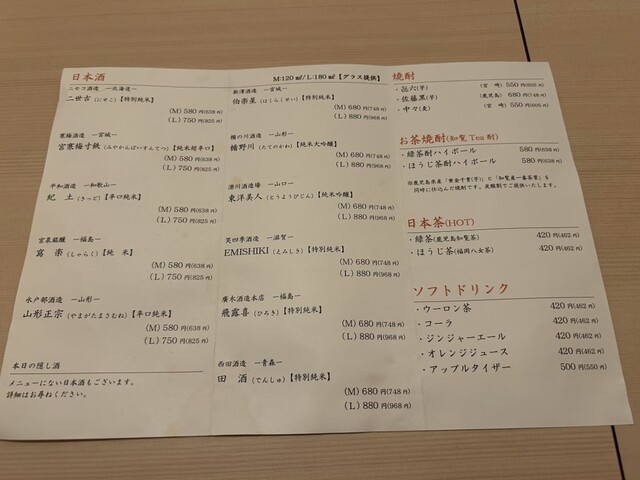 日本酒
M:120㎖/L:180㎖【グラス提供】
ニセコ酒造 ー北海道ー
二世古(にせこ)【特別純米】
(M) 580円(638円)
(L) 750円(825円)
寒梅酒造 ー宮城ー
宮寒梅寸鉄(みやかんばいすんてつ)【純米超辛口】
(M) 580円(638円)
(L) 750円(825円)
平和酒造 ー和歌山ー
紀 土(きっど)【辛口純米】
(M) 580円(638円)
(L) 750円(825円)
宮泉銘醸 ー福島ー
寫 楽(しゃらく)【純 米】
(M) 580円(638円)
(L) 750円(825円)
水戸部酒造 ー山形ー
山形正宗(やまがたまさむね)【辛口純米】
(M) 580円(638円)
(L) 750円(825円)
本日の隠し酒
メニューにない日本酒もございます。
詳細はお尋ねください。
新澤酒造 ー宮城ー
伯楽星(はくらくせい)【特別純米】
(M) 680円(748円)
(L) 880円(968円)
楯の川酒造 ー山形ー
楯野川(たてのかわ)【純米大吟醸】
(M) 680円(748円)
(L) 880円(968円)
澄川酒造場 ー山口ー
東洋美人(とうようびじん)【純米吟醸】
(M) 680円(748円)
(L) 880円(968円)
笑四季酒造 ー滋賀ー
EMISHIKI(えみしき)【特別純米】
(M) 680円(748円)
(L) 880円(968円)
廣木酒造本店 ー福島ー
飛露喜(ひろき)【特別純米】
(M) 680円(748円)
(L) 880円(968円)
西田酒造 ー青森ー
田 酒(でんしゅ)【特別純米】
(M) 680円(748円)
(L) 880円(968円)
焼酎
・㐂六(芋) (宮 崎) 550円(605円)
・佐藤黒(芋) (鹿児島) 680円(748円)
・中々(麦) (宮 崎) 550円(605円)
お茶焼酎(知覧Tea酎)
・緑茶酎ハイボール 580円(638円)
・ほうじ茶酎ハイボール 580円(638円)
※鹿児島県産「黄金千貫(芋)」と「知覧産一番茶葉」を
同時に仕込んだ焼酎です。炭酸割でご提供いたします。
日本茶(HOT)
・緑茶(鹿児島知覧茶) 420円(462円)
・ほうじ茶(福岡八女茶) 420円(462円)
ソフトドリンク
・ウーロン茶 420円(462円)
・コーラ 420円(462円)
・ジンジャーエール 420円(462円)
・オレンジジュース 420円(462円)
・アップルタイザー 500円(550円)